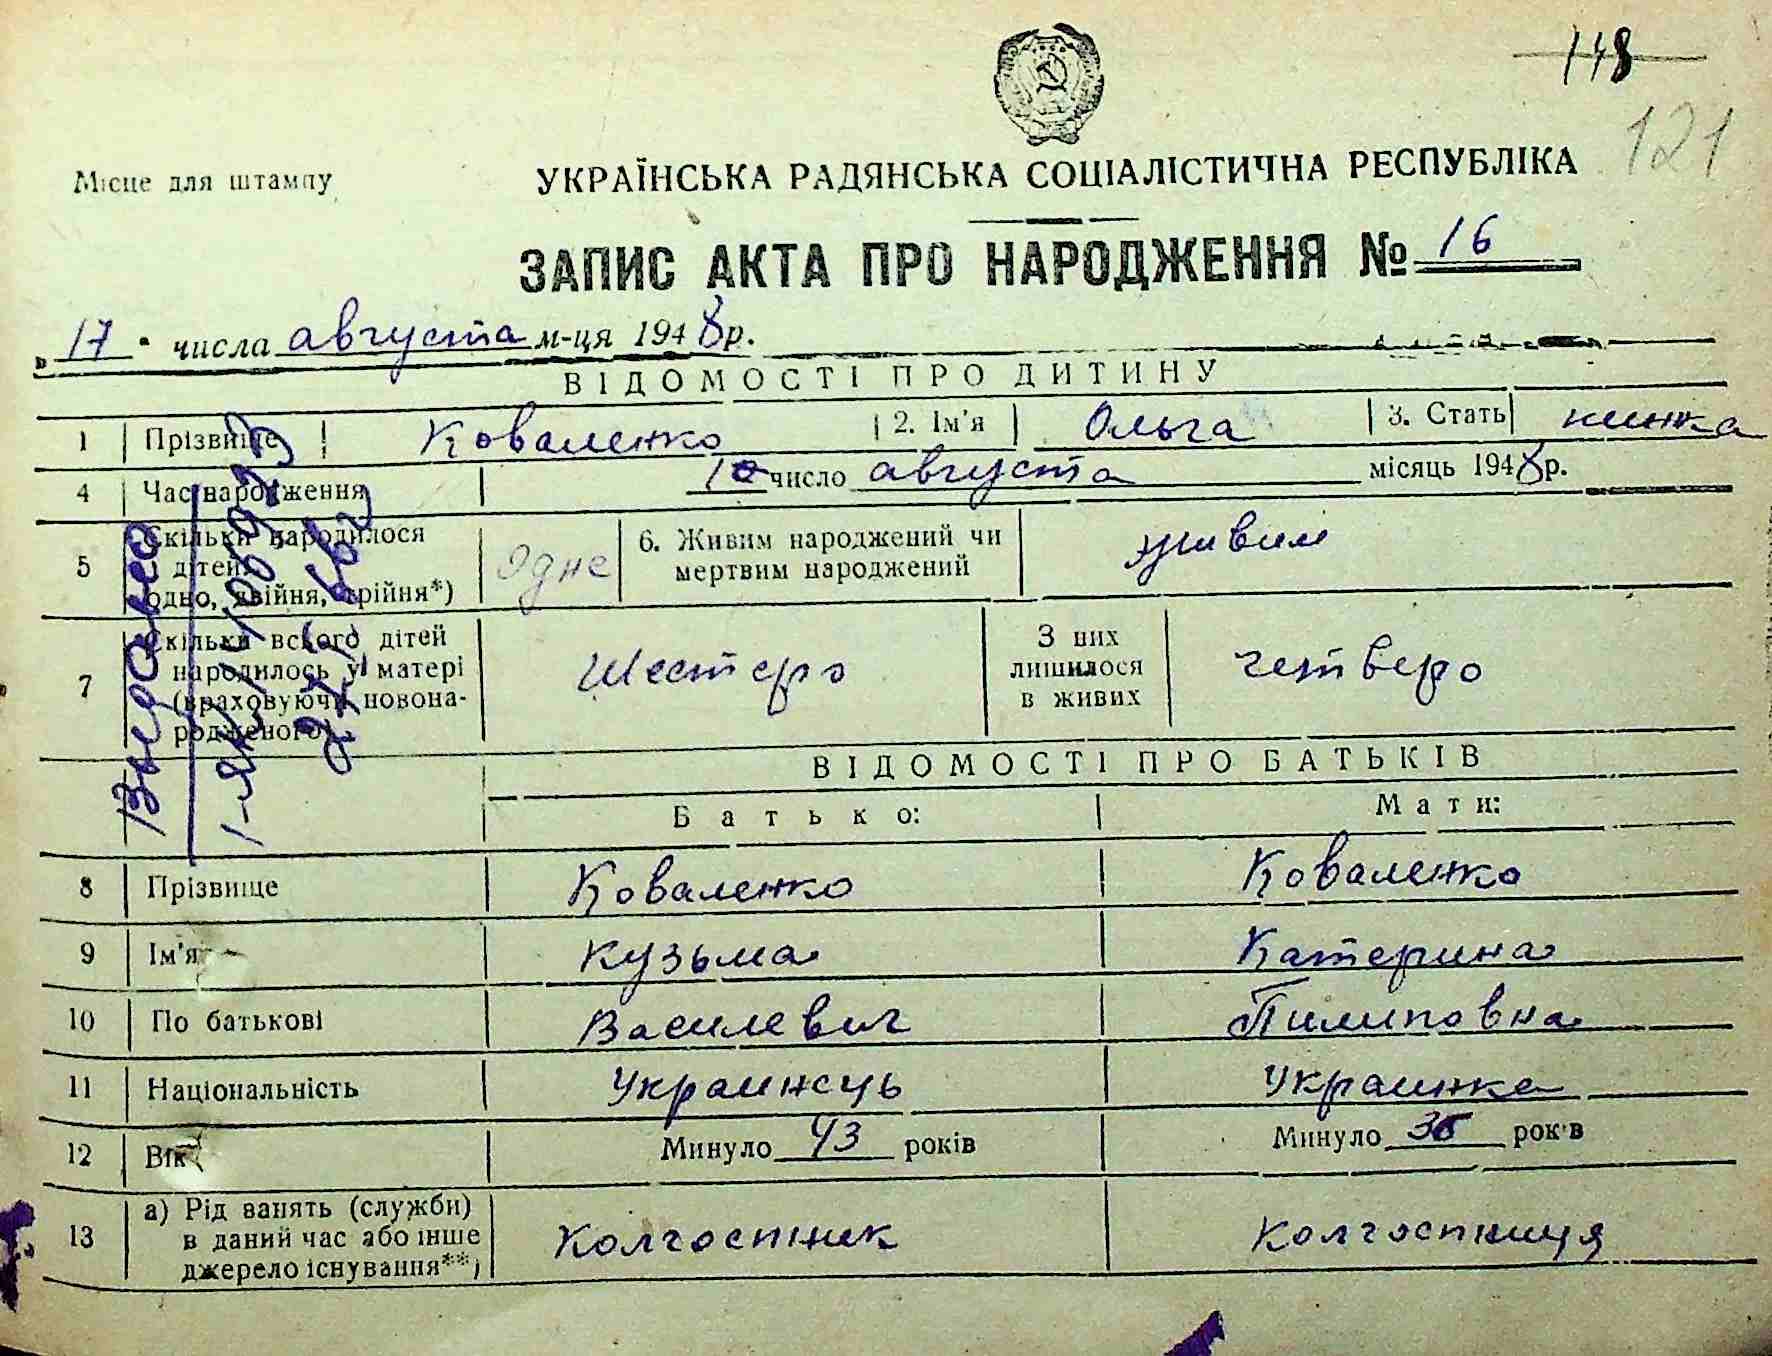 148
121
Місце для штампу
УКРАЇНСЬКА РАДЯНСЬКА СОЦІАЛІСТИЧНА РЕСПУБЛІКА
ЗАПИС АКТА ПРО НАРОДЖЕННЯ № 16
„ 17 " числа августа м-ця 1948 р.
ВІДОМОСТІ ПРО ДИТИНУ
1 Прізвище Коваленко 2. Ім'я Ольга 3. Стать
4 Час народження 10 число августа місяць 1948 р.
5 Скільки народилося дітей одно, двійня, трійня*) Одне 6. Живим народжений чи мертвим народжений живим
7 Скільки всього дітей народилось у матері (враховуючи новонародженого) Шестеро З них лишилося в живих четверо
ВІДОМОСТІ ПРО БАТЬКІВ
Батько: Мати:
8 Прізвище Коваленко Коваленко
9 Ім'я Кузьма Катерина
10 По батькові Василевич Пилиповна
11 Національність Украинець Украинка
12 Вік Минуло 43 років Минуло років
13 а) Рід занять (служби) в даний час або інше джерело існування**) Колгоспник Колгоспниця